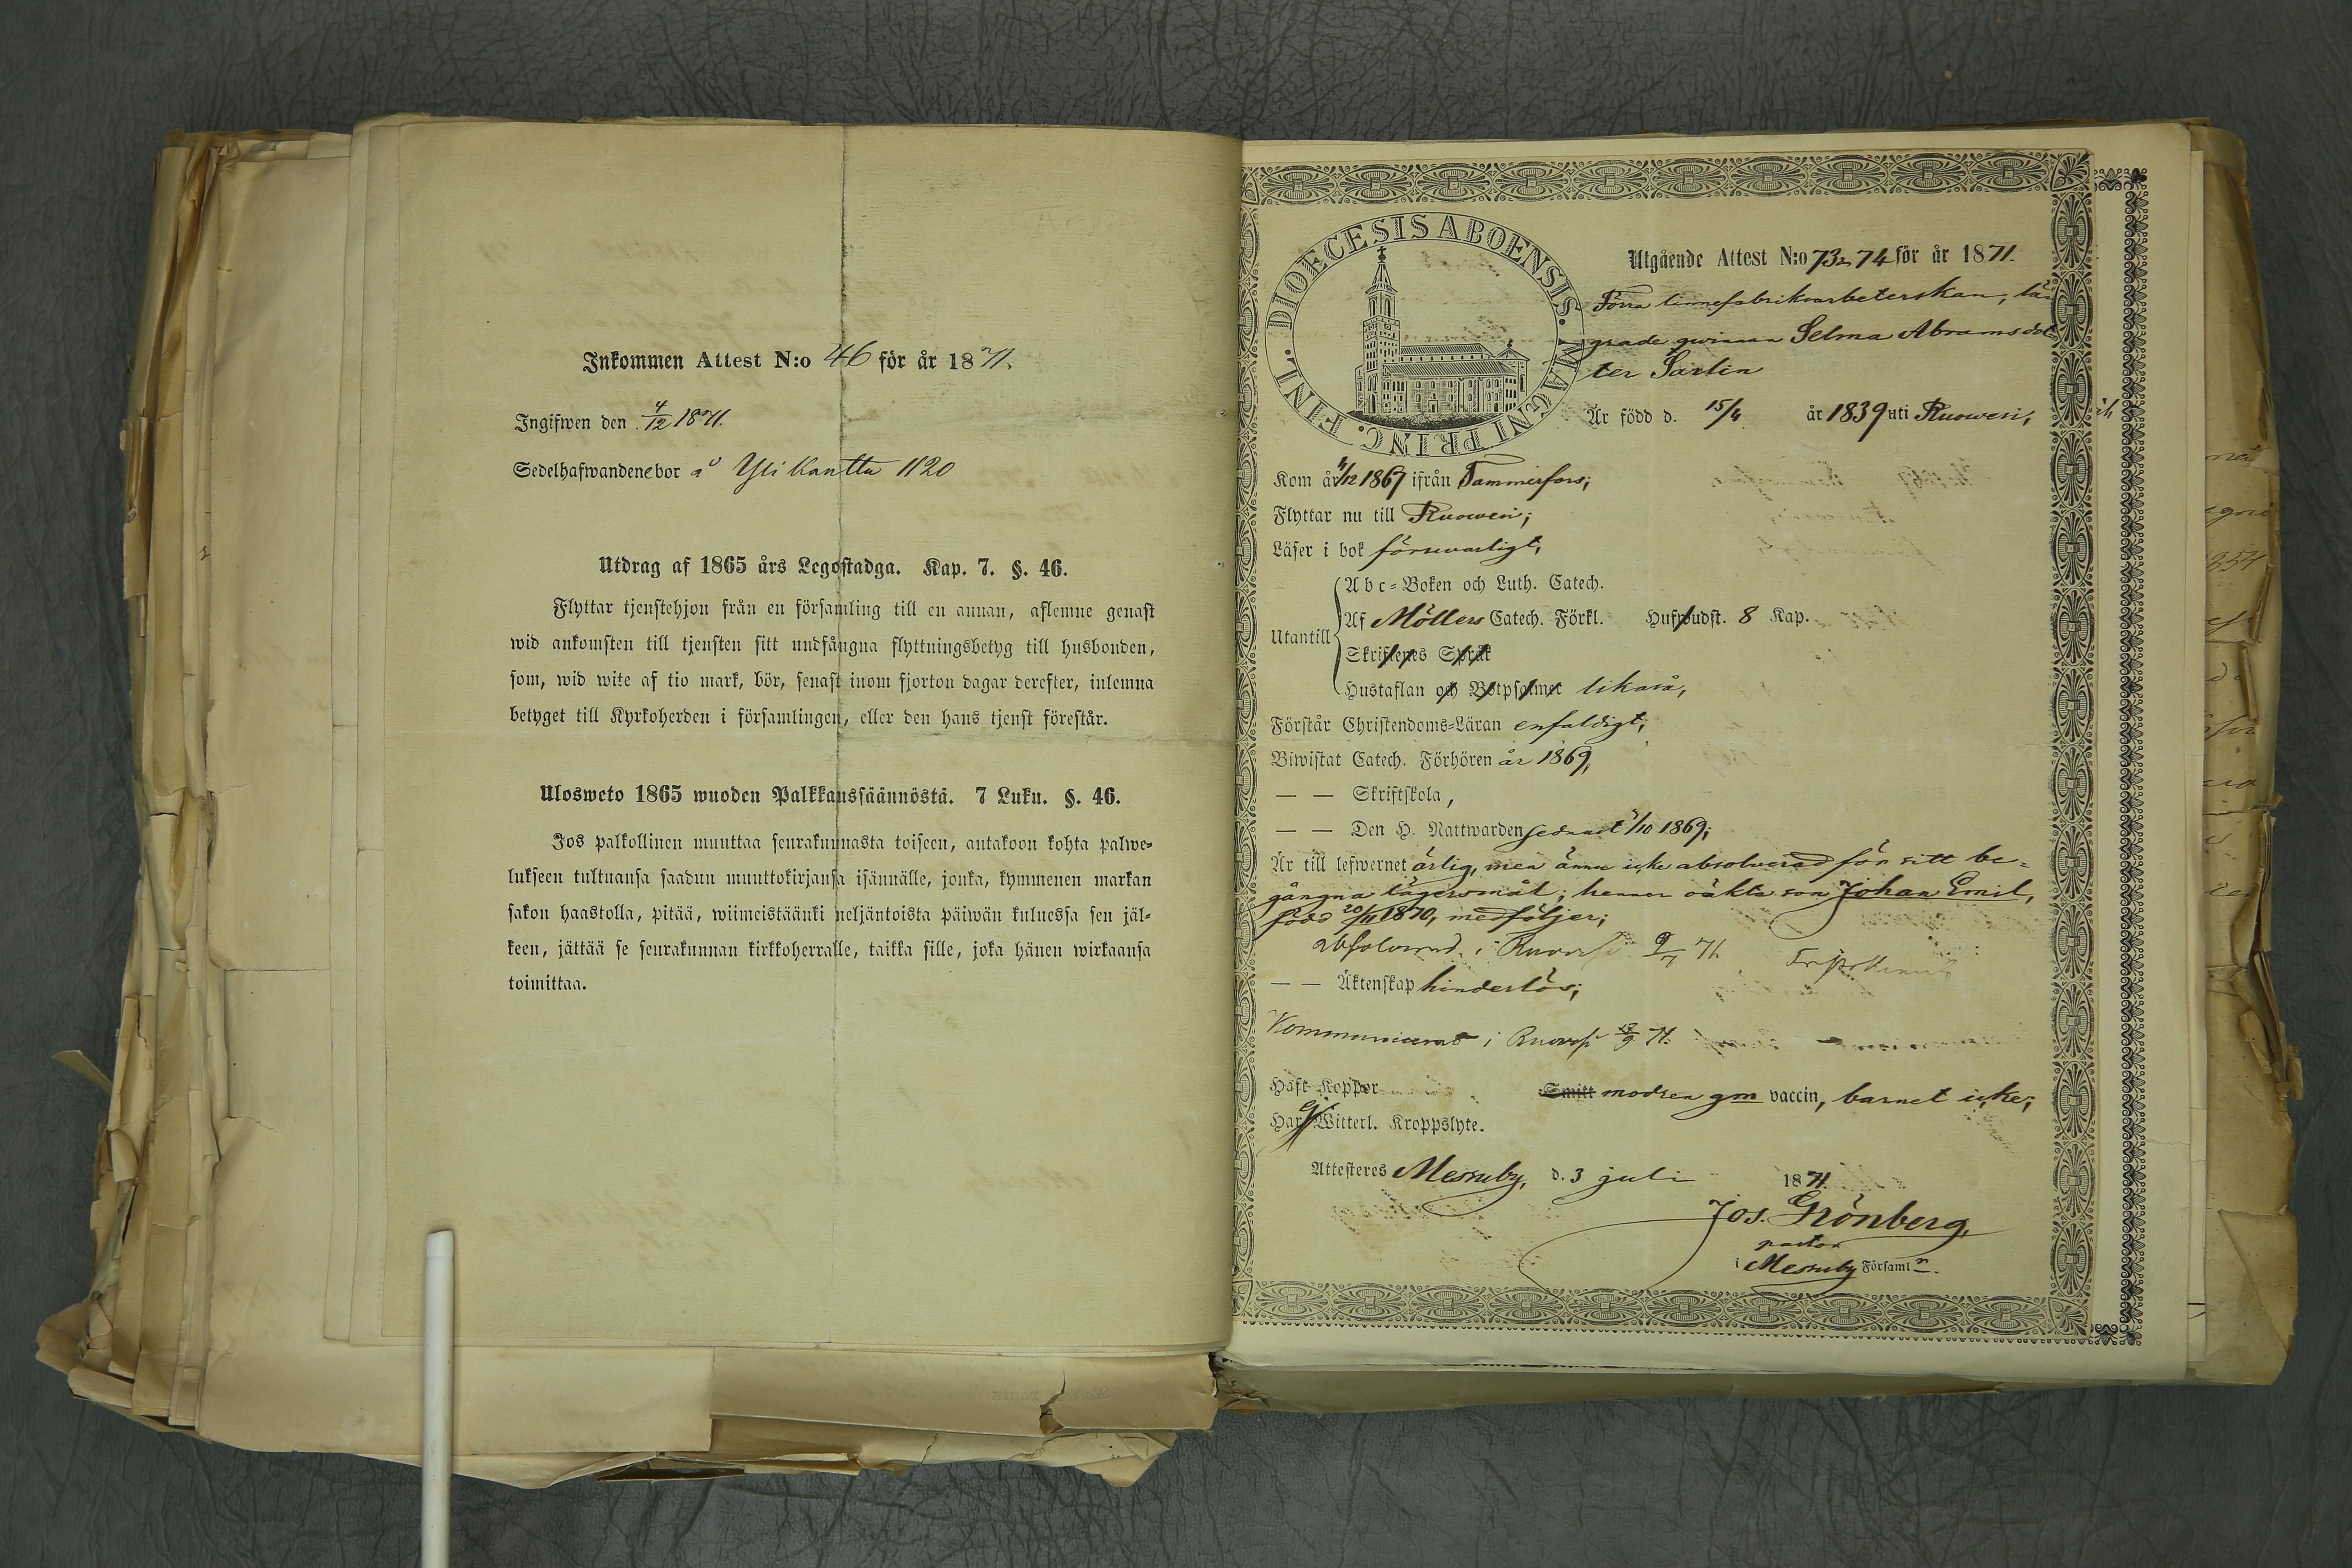 Inkommen Attest N:o 46 för år 1871.
Ingifwen den 4/12 1871.
Sedelhafwanden bor å Yli Kantta 1120
Utdrag af 1865 års Legostadga. Kap. 7. §. 46.
Flyttar tjenstehjon från en församling till en annan, aflemne genast
wid ankomsten till tjensten sitt undfångna flyttningsbetyg till husbonden,
som, wid wite af tio mark, bör, senast inom fjorton dagar derefter, inlemna
betyget till Kyrkoherden i församlingen, eller den hans tjenst förestår.
Ulosweto 1865 wuoden Palkkaussäännöstä. 7 Luku. §. 46.
Jos palkollinen muuttaa seurakunnasta toiseen, antakoon kohta palwe-
lukseen tultuansa saadun muuttokirjansa isännälle, jonka, kymmenen markan
sakon haastolla, pitää, wiimeistäänki neljäntoista päiwän kuluessa sen jäl-
keen, jättää se seurakunnan kirkkoherralle, taikka sille, joka hänen wirkaansa
toimittaa.
DIOECESIS ABOENSIS. MAGNI PRINC. FINL.
Utgående Attest N:o 73 & 74 för år 1871.
Förra linnefabriksarbeterskan, lä-
grade qwinnan Selma Abramsdot
ter Sarlin
Är född d. 15/4 år 1839 uti Ruowesi,
Kom år 4/12 1867 ifrån Tammerfors;
Flyttar nu till Ruowesi;
Läser i bok förswarligt,
Utantill
Abc-Boken och Luth. Catech.
Af Möllers Catech. Förkl. Hufwudst. 8 Kap.
Skriftenes Språk
Hustaflan och Botpsalmer likaså,
Förstår Christendoms-Läran enfaldigt;
Biwistat Catech. Förhören år 1869,
— — Skriftskola,
— — Den H. Nattwarden sednast /10 1869;
Är till lefwernet ärlig, men ännu icke absolverad för sitt be-
gångna lägersmål; hennes oäkta son Johan Emil,
född 20/11 1870, medföljer;
absolverad i Ruovesi 9/7 71.
— — Äktenskap hinderlös;
Kommunicerat i Ruovesi /9 71.
Haft Koppor Smitt modren gm vaccin, barnet icke;
Har Ej Witterl. Kroppslyte.
Attesteres Messuby, d. 3 juli 1871.
Jos. Grönberg,
pastor
i Messuby Församl n.